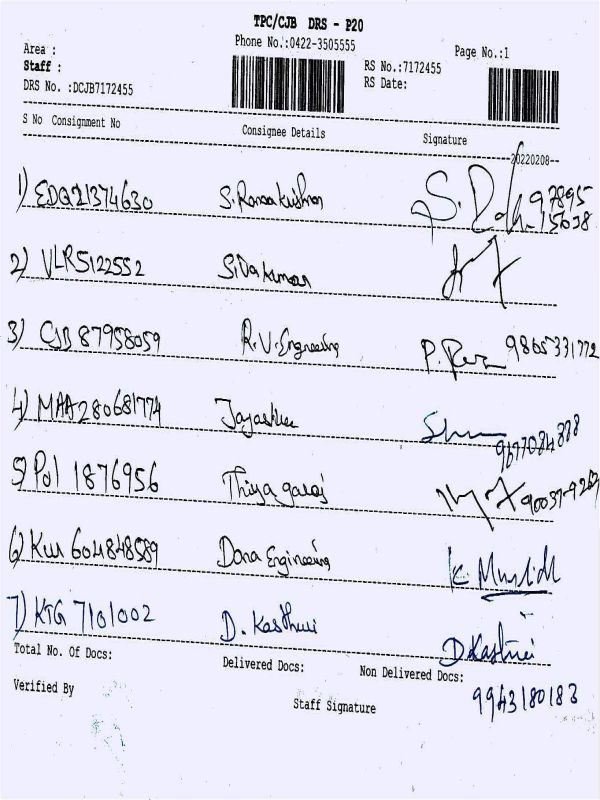 TPC/CJB DRS - P20
Area :
Phone No.:0422-3505555
Page No.:1
Staff :
RS No.:7172455
DRS No. :DCJB7172455
RS Date:
S No Consignment No Consignee Details Signature
20220208
1) EDQ21374630 S. Ramakrishnan 97895
15638
2) VLR5122552 Sivakumar
3) CJB 87958059 R.V. Engineering 9865331772
4) MAA280681774 Jayashree
9677084888
5) Pol 1876956 Thiyagaraj
6) 604848589 Dana Engineering K.
7) KTG 7101002 D. Kasthuri D. Kasthuri
Total No. Of Docs: Delivered Docs: Non Delivered Docs:
9943180183
Verified By Staff Signature